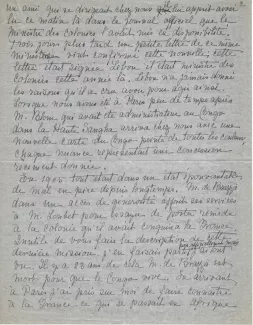 un ami qui se dirigeant chez nous
ce matin là dans le Journal officiel que le
Ministre des colonies l'avait mis en disponibilité.
trois jours plus tard une petite lettre de ce même
Ministre confirmé cette nouvelle, cette
lettre était signée Lebon, il était ministre des
Colonies cette année là. Lebon n'a jamais donné
les raisons qu'il a cru avoir pour agir ainsi
lorsque nous avons été à Paris peu de temps après
M. qui avait été administrateur au Congo
dans la Haute Sangha arriva chez nous avec une
nouvelle carte du Congo pointée de toutes les couleurs,
chaque nuance représentant une concession
récemment donnée.
En 1905 tout était dans un état épouvantable
de mal en pire depuis longtemps. M. de Brazza
dans un accès de générosité offrit ses services
à M. Loubet pour essayer de porter remède
à la Colonie qu'il avait conquis à la France.
Inutile de vous faire la description de cette
dernière mission,
on il y a 28 ans de cela M. de Brazza est
mort pour que le Congo vive. En arrivant
à Paris j'ai pris sur moi de faire connaître
à la France ce qui se passait en Afrique